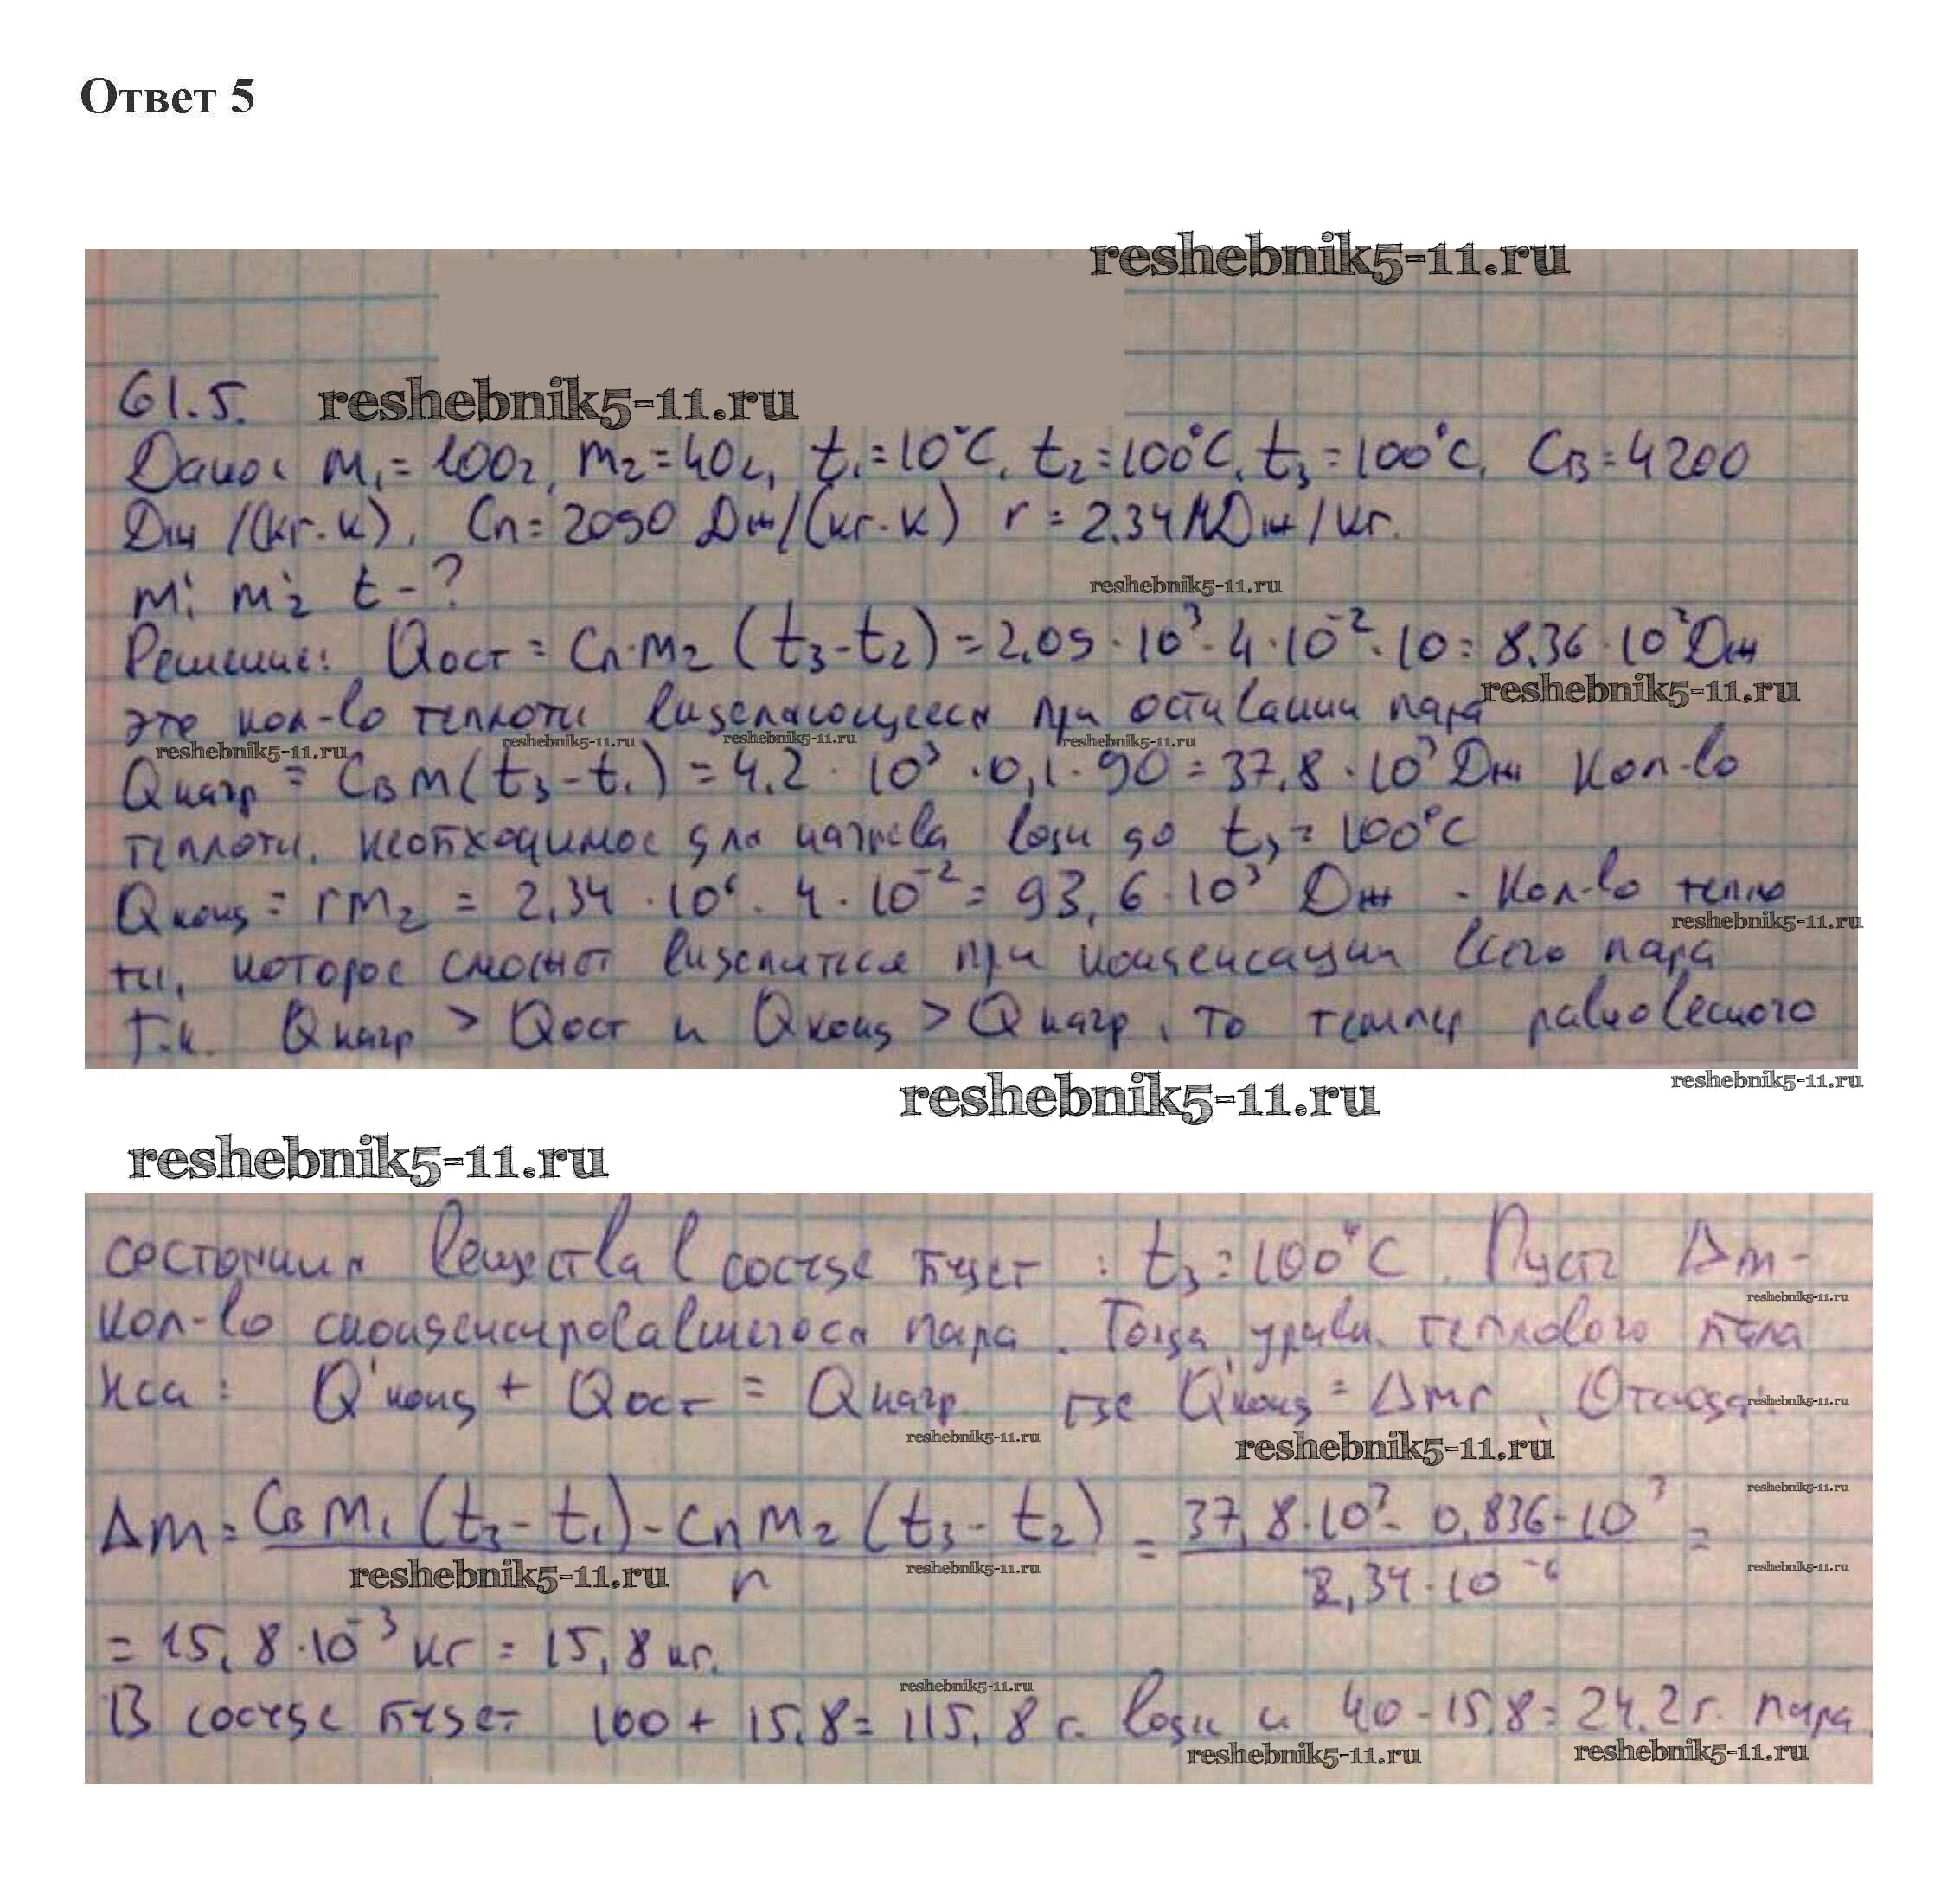 Ответ 5
reshebnik5-11.ru
61.5. reshebnik5-11.ru
Дано: m₁=100г, m₂=40г, t₁=10°C, t₂=100°C, t₃=100°C, Cв=4200
Дж/(кг·к), Cп=2090 Дж/(кг·к) r=2.34МДж/кг.
m₁' m₂' t-?
reshebnik5-11.ru
Решение: Qост = Cп·m₂ (t₃-t₂)=2,09·10³·4·10⁻²·10=8,36·10²Дж
reshebnik5-11.ru
это кол-во теплоты выделяющееся при остывании пара
reshebnik5-11.ru reshebnik5-11.ru reshebnik5-11.ru reshebnik5-11.ru
Qнагр = Cвm(t₃-t₁)=4.2·10³·0,1·90=37,8·10³Дж Кол-во
теплоты, необходимое для нагрева воды до t₃=100°C
Qконд = rm₂ = 2,34·10⁶·4·10⁻²=93,6·10³ Дж - Кол-во тепло
reshebnik5-11.ru
ты, которое сможет выделиться при конденсации всего пара
Т.к. Qнагр > Qост и Qконд > Qнагр, то темпер равновесного
reshebnik5-11.ru reshebnik5-11.ru
reshebnik5-11.ru
состояния вещества в сосуде будет: t₃=100°C. Пусть Δm-
reshebnik5-11.ru
кол-во сконденсировавшегося пара. Тогда уравн. теплового бала
нса: Q'конд + Qост = Qнагр где Q'конд = Δmr, Отсюда:
reshebnik5-11.ru
reshebnik5-11.ru reshebnik5-11.ru
reshebnik5-11.ru
Δm = Cв m₁ (t₃-t₁)-Cп m₂ (t₃-t₂) / r = 37,8·10³- 0,836·10³ / 2,34·10⁻⁶ =
reshebnik5-11.ru reshebnik5-11.ru reshebnik5-11.ru
= 15,8·10⁻³ кг = 15,8 кг.
reshebnik5-11.ru
В сосуде будет 100+15,8=115,8 г. воды и 40-15,8=24,2г. пара
reshebnik5-11.ru reshebnik5-11.ru